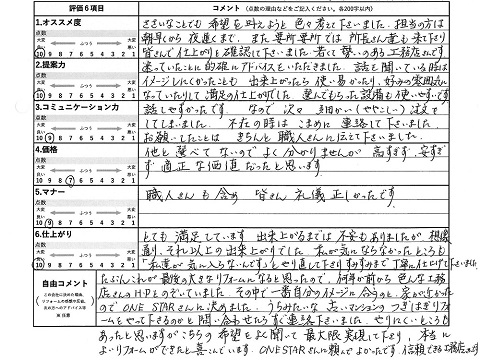 評価6項目
コメント (点数の理由などをご記入ください。各200字以内)
1.オススメ度
点数
大変良い ふつう 大変悪い
10 9 8 7 6 5 4 3 2 1
ささいなことでも 希望を叶えようと 色々考えて下さいました。担当の方は
朝早から 夜遅くまで、また要所要所では 所長さん達も来て下さり
皆さんで仕上がりを確認して下さいました。若くて勢いのある工務店さんです
2.提案力
点数
大変良い ふつう 大変悪い
10 9 8 7 6 5 4 3 2 1
迷っていたことに的確にアドバイスをいただきました。話を聞いている時は
イメージしにくかったことも 出来上がったら 使い易かったり、好みの雰囲気に
なっていたりして満足の仕上がりでした。選んでもらった設備も使いやすいです
3.コミュニケーション力
点数
大変良い ふつう 大変悪い
10 9 8 7 6 5 4 3 2 1
話しやすかったです。なので 次々 細かい(ややこしい)注文を
してしまいました。不在の時は こまめに 連絡して下さいました。
お願いしたことは きちんと 職人さんに伝えて下さいました。
4.価格
点数
大変良い ふつう 大変悪い
10 9 8 7 6 5 4 3 2 1
他と比べてないのでよく分かりませんが 高すぎず、安すぎ
ず 適正な価値だったと思います。
5.マナー
点数
大変良い ふつう 大変悪い
10 9 8 7 6 5 4 3 2 1
職人さんも含め 皆さん 礼儀正しかったです。
6.仕上がり
点数
大変良い ふつう 大変悪い
10 9 8 7 6 5 4 3 2 1
とても 満足しています。出来上がるまでは 不安もありましたが 想像
通り、それ以上の出来上がりでした。私が気にならなかったところも
「私達が気に入らないんです」とやり直して下さりすみずみまで丁寧に仕上げて下さいました
自由コメント
たぶんこれが最後の大きなリフォームになると思ったので、何年か前から色んな工務
店さんのHPをのぞいていました。その中で一番自分のイメージに合うのと、家が近かった
のでONE STARさんに決めました。うちみたいな 古いマンションの つぎはぎリフォ
ームをやって下さるのかと問い合わせたらすぐ連絡下さいました。やりにくいところも
あったと思いますがこちらの希望をよく聞いて 最大限実現して下さり、本当に
よいリフォームができたと喜んでいます。ONE STARさんに頼んでよかったです。信頼できる工務店さんです